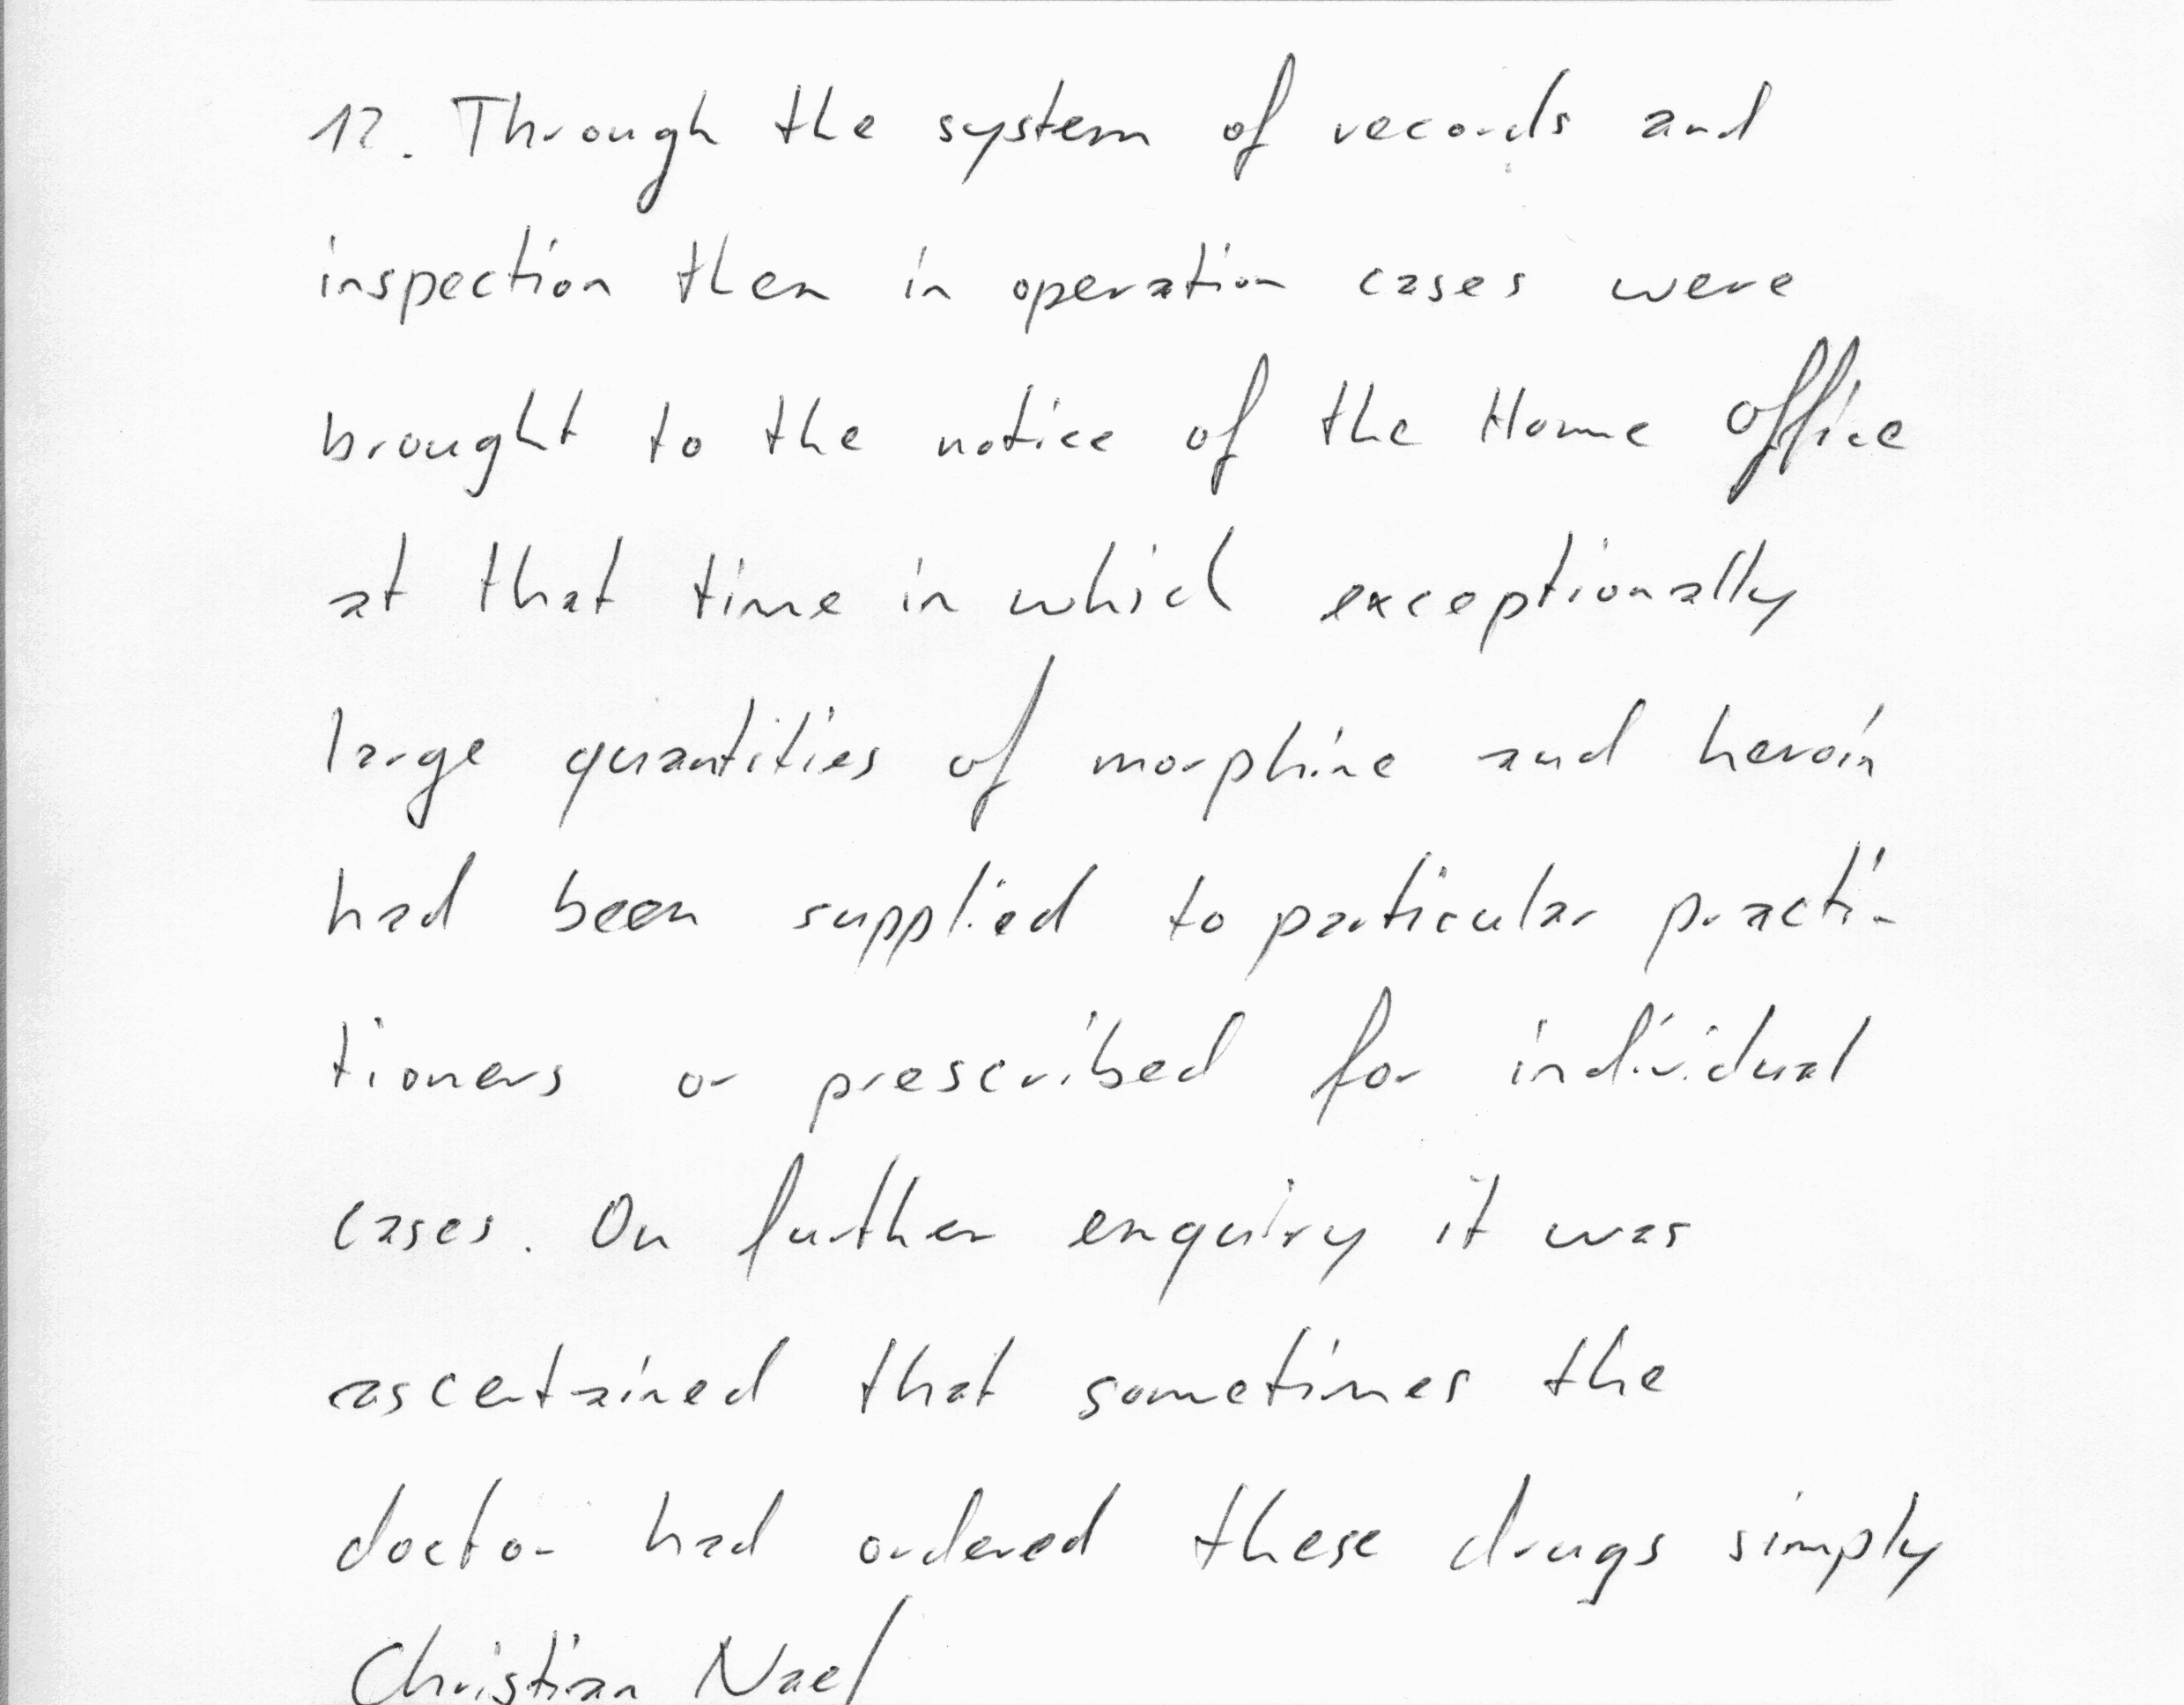 12. Through the system of records and
inspection then in operation cases were
brought to the notice of the Home Office
at that time in which exceptionally
large quantities of morphine and heroin
had been supplied to particular practi-
tioners or prescribed for individual
cases. On further enquiry it was
ascertained that sometimes the
doctor had ordered these drugs simply
Christian